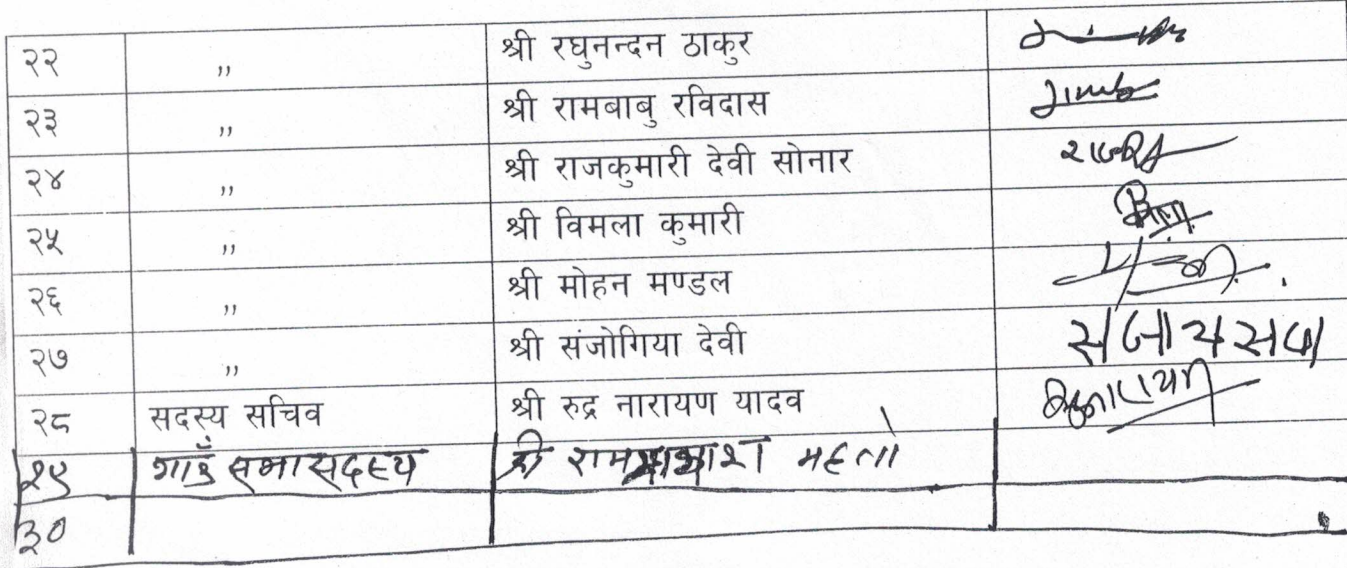 २२ ,, श्री रघुनन्दन ठाकुर
२३ ,, श्री रामबाबु रविदास
२४ ,, श्री राजकुमारी देवी सोनार
२५ ,, श्री विमला कुमारी
२६ ,, श्री मोहन मण्डल
२७ ,, श्री संजोगिया देवी
२८ सदस्य सचिव श्री रुद्र नारायण यादव
२९ गाउँ सभा सदस्य श्री महतो
३०